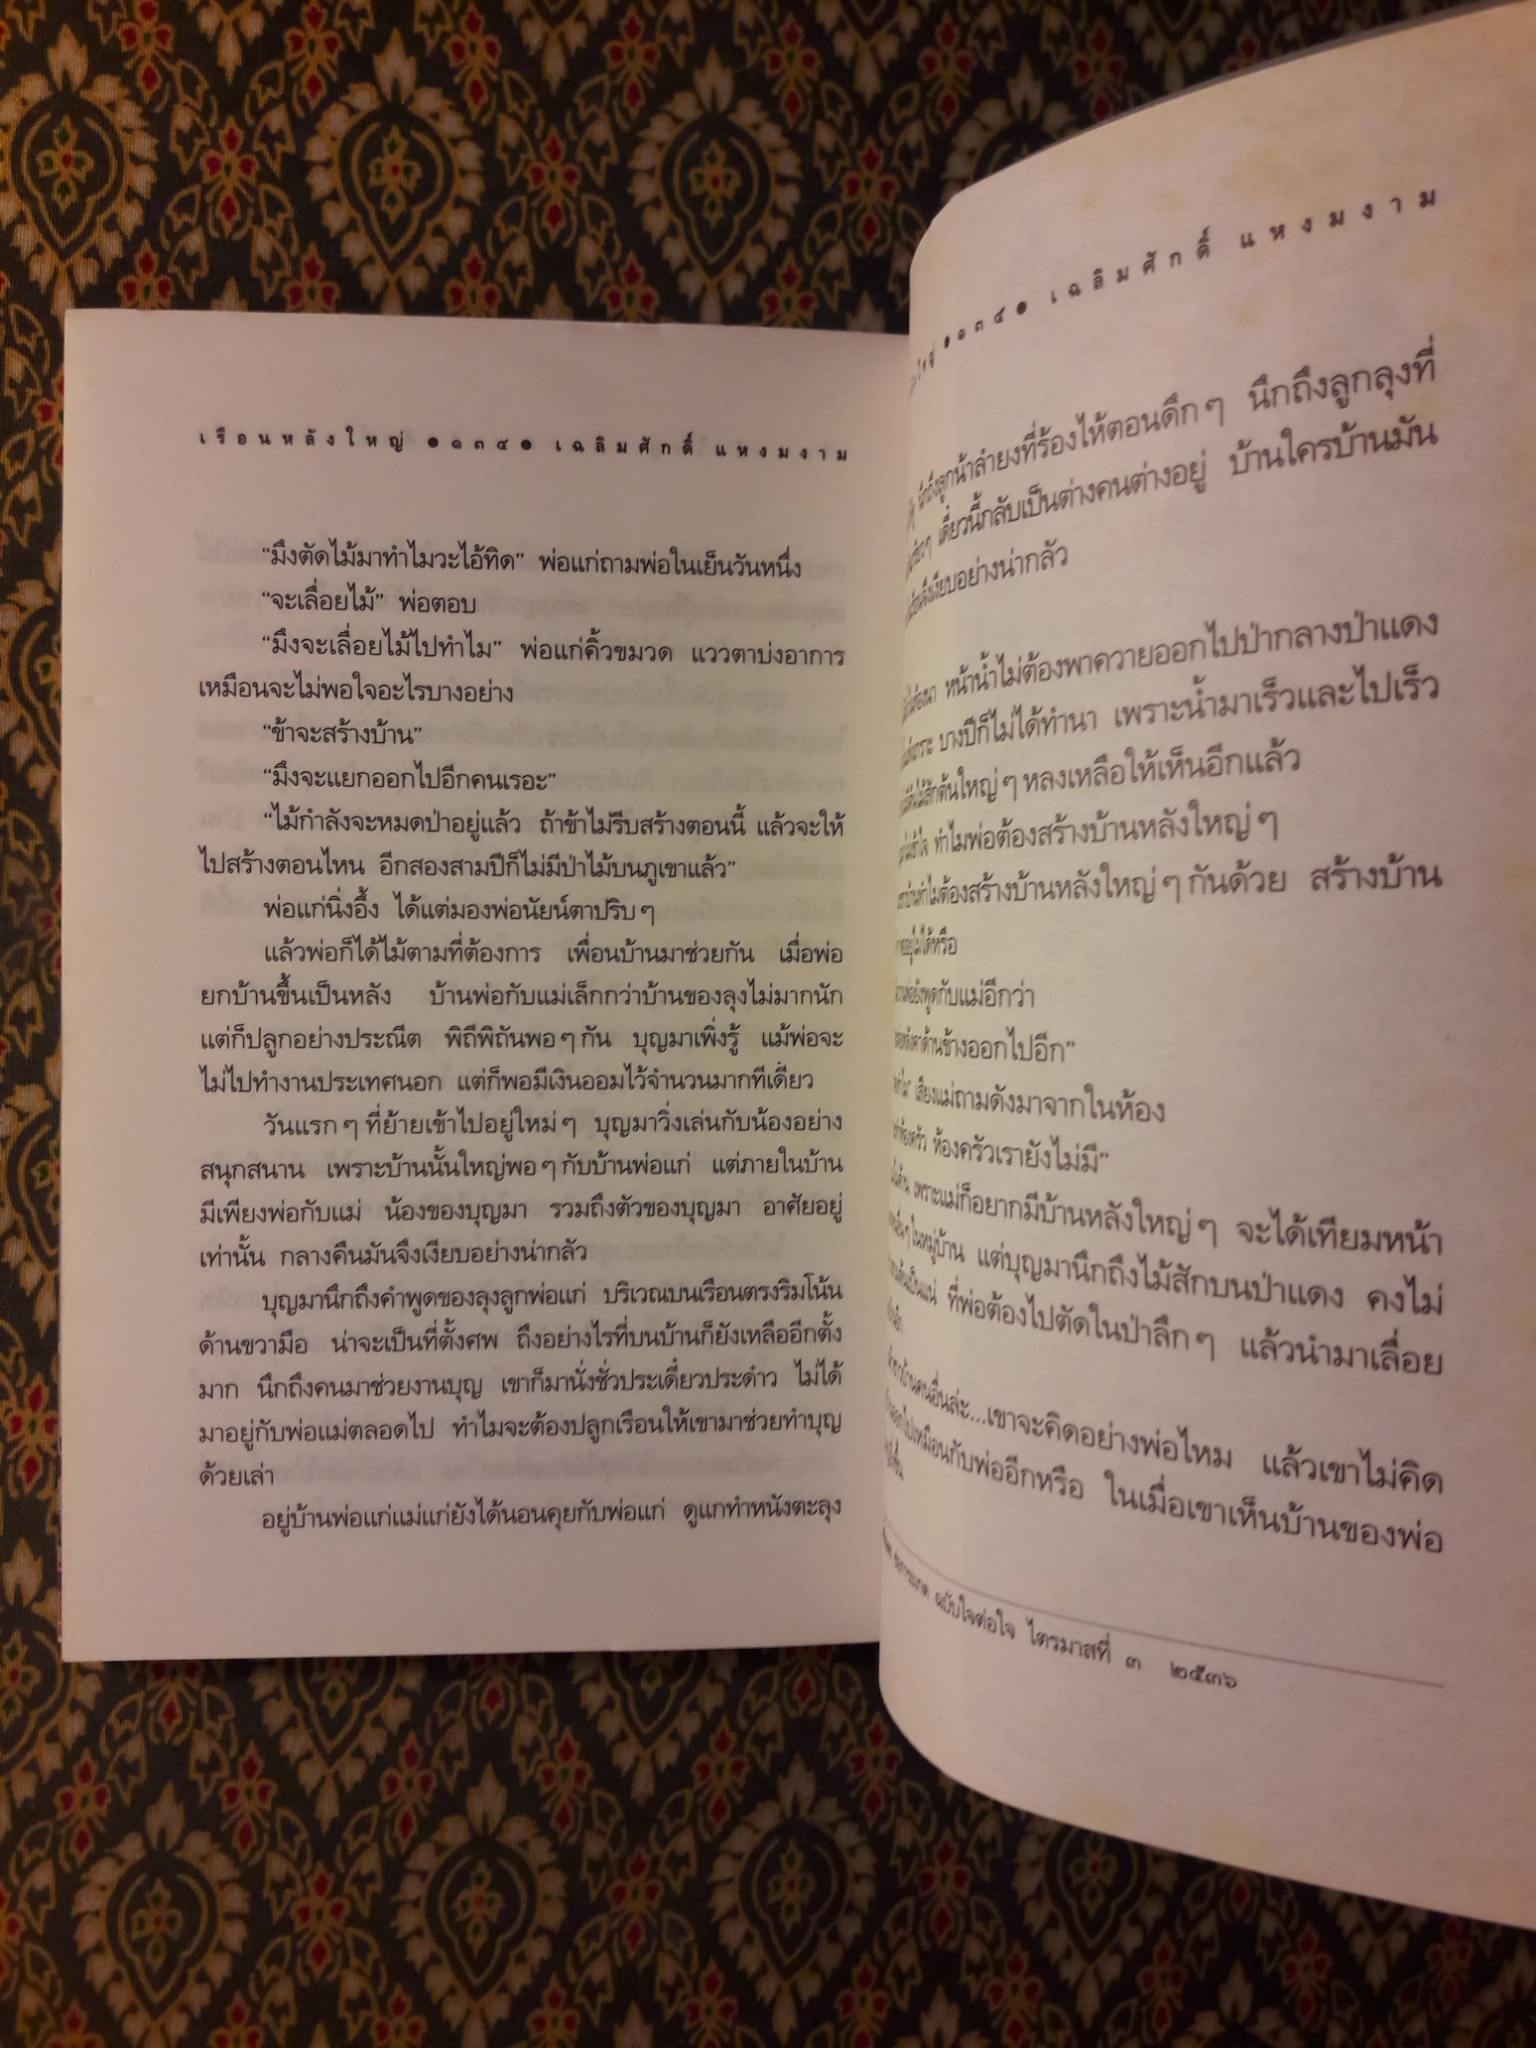 เรือนหลังใหญ่ ●๑๓๔● เฉลิมศักดิ์ แหงมงาม
“มึงตัดไม้มาทำไมวะไอ้ทิด” พ่อแก่ถามพ่อในเย็นวันหนึ่ง
“จะเลื่อยไม้” พ่อตอบ
“มึงจะเลื่อยไม้ไปทำไม” พ่อแก่คิ้วขมวด แววตาบ่งอาการ
เหมือนจะไม่พอใจอะไรบางอย่าง
“ข้าจะสร้างบ้าน”
“มึงจะแยกออกไปอีกคนเรอะ”
“ไม้กำลังจะหมดป่าอยู่แล้ว ถ้าข้าไม่รีบสร้างตอนนี้ แล้วจะให้
ไปสร้างตอนไหน อีกสองสามปีก็ไม่มีป่าไม้บนภูเขาแล้ว”
พ่อแก่นิ่งอึ้ง ได้แต่มองพ่อนัยน์ตาปริบๆ
แล้วพ่อก็ได้ไม้ตามที่ต้องการ เพื่อนบ้านมาช่วยกัน เมื่อพ่อ
ยกบ้านขึ้นเป็นหลัง บ้านพ่อกับแม่เล็กกว่าบ้านของลุงไม่มากนัก
แต่ก็ปลูกอย่างประณีต พิถีพิถันพอๆกัน บุญมาเพิ่งรู้ แม้พ่อจะ
ไม่ไปทำงานประเทศนอก แต่ก็พอมีเงินออมไว้จำนวนมากทีเดียว
วันแรกๆที่ย้ายเข้าไปอยู่ใหม่ๆ บุญมาวิ่งเล่นกับน้องอย่าง
สนุกสนาน เพราะบ้านนั้นใหญ่พอๆกับบ้านพ่อแก่ แต่ภายในบ้าน
มีเพียงพ่อกับแม่ น้องของบุญมา รวมถึงตัวของบุญมา อาศัยอยู่
เท่านั้น กลางคืนมันจึงเงียบอย่างน่ากลัว
บุญมานึกถึงคำพูดของลุงลูกพ่อแก่ บริเวณบนเรือนตรงริมโน้น
ด้านขวามือ น่าจะเป็นที่ตั้งศพ ถึงอย่างไรที่บนบ้านก็ยังเหลืออีกตั้ง
มาก นึกถึงคนมาช่วยงานบุญ เขาก็มานั่งชั่วประเดี๋ยวประด๋าว ไม่ได้
มาอยู่กับพ่อแม่ตลอดไป ทำไมจะต้องปลูกเรือนให้เขามาช่วยทำบุญ
ด้วยเล่า
อยู่บ้านพ่อแก่แม่แก่ยังได้นอนคุยกับพ่อแก่ ดูแกทำหนังตะลุง
●๑๓๕● เฉลิมศักดิ์ แหงมงาม
นึกถึงลูกน้าลำยงที่ร้องไห้ตอนดึกๆ นึกถึงลูกลุงที่
เดี๋ยวนี้กลับเป็นต่างคนต่างอยู่ บ้านใครบ้านมัน
อย่างน่ากลัว
หน้าน้ำไม่ต้องพาควายออกไปป่ากลางป่าแดง
บางปีก็ไม่ได้ทำนา เพราะน้ำมาเร็วและไปเร็ว
ต้นใหญ่ๆหลงเหลือให้เห็นอีกแล้ว
ทำไมพ่อต้องสร้างบ้านหลังใหญ่ๆ
ทำไมต้องสร้างบ้านหลังใหญ่ๆกันด้วย สร้างบ้าน
อยู่ไม่ได้หรือ
พ่อยังพูดกับแม่อีกว่า
หลังคาด้านข้างออกไปอีก”
เสียงแม่ถามดังมาจากในห้อง
ห้องครัว ห้องครัวเรายังไม่มี”
เพราะแม่ก็อยากมีบ้านหลังใหญ่ๆ จะได้เทียมหน้า
ในหมู่บ้าน แต่บุญมานึกถึงไม้สักบนป่าแดง คงไม่
ที่พ่อต้องไปตัดในป่าลึกๆ แล้วนำมาเลื่อย
คนอื่นล่ะ...เขาจะคิดอย่างพ่อไหม แล้วเขาไม่คิด
เหมือนกับพ่ออีกหรือ ในเมื่อเขาเห็นบ้านของพ่อ
ฉบับใจต่อใจ ไตรมาสที่ ๓ ๒๕๓๖